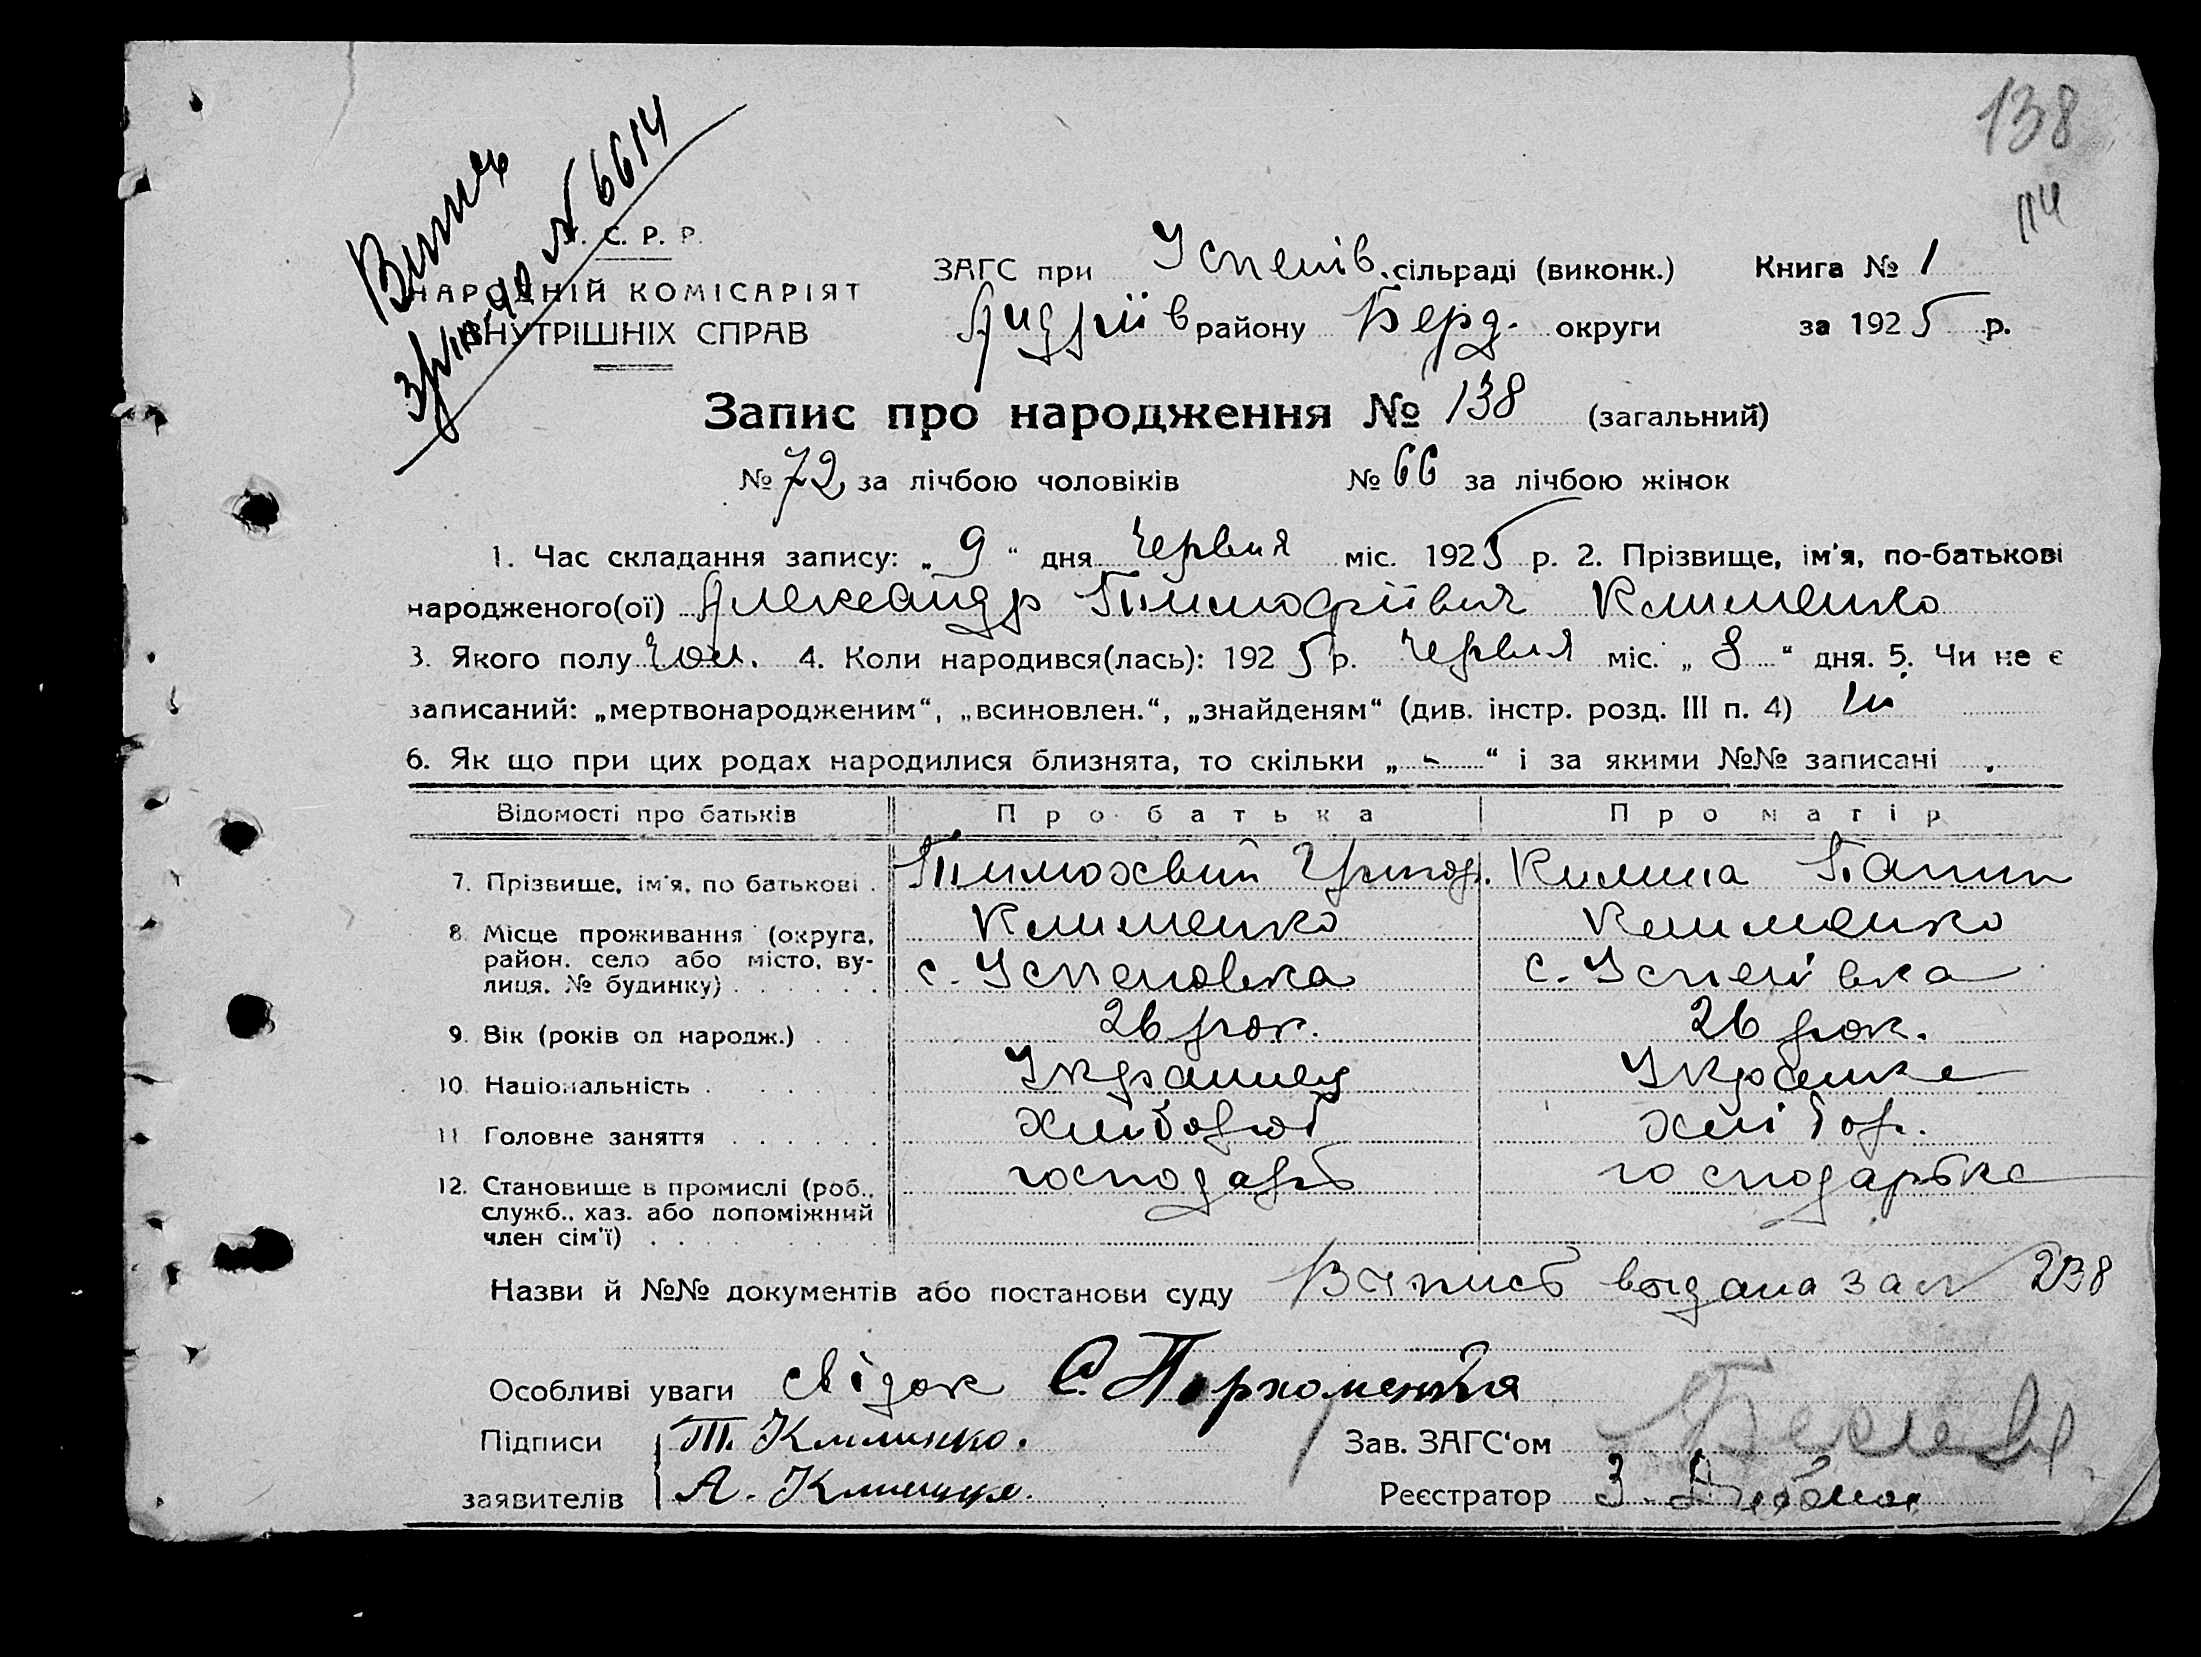 138
114
Випис
№ 6614
У. С. Р. Р.
НАРОДНІЙ КОМІСАРІЯТ
ВНУТРІШНІХ СПРАВ
ЗАГС при Успенів. сільраді (виконк.) Книга № 1
Андріїв району Берд. округи за 1925 р.
Запис про народження № 138 (загальний)
№ 72 за лічбою чоловіків № 66 за лічбою жінок
1. Час складання запису: „ 9 “ дня Червня міс. 1925 р. 2. Прізвище, ім'я, по-батькові
народженого(ої) Александр Тимофіївич Клименко
3. Якого полу Чол. 4. Коли народився(лась): 1925 р. Червня міс. „ 8 “ дня. 5. Чи не є
записаний: „мертвонародженим“, „всиновлен.“, „знайденям“ (див. інстр. розд. III п. 4) Ні
6. Як що при цих родах народилися близнята, то скільки „ - “ і за якими №№ записані
Відомості про батьків Про батька Про матір
7. Прізвище, ім'я, по батькові Тимохвий Григор. Килина
Клименко Клименко
8. Місце проживання (округа, район, село або місто, вулиця, № будинку) с. Успеновка с. Успенівка
9. Вік (років од народж.) 26 рок. 26 рок.
10. Національність Украинец Украинка
11. Головне заняття Хлібороб хлібор.
12. Становище в промислі (роб., служб., хаз. або допоміжний член сім'ї) господарь господарька
Назви й №№ документів або постанови суду Випись видана за № 238
Особливі уваги свідок С. Пархомен
Підписи Т. Клименко. Зав. ЗАГС'ом
заявителів А. Реєстратор З.